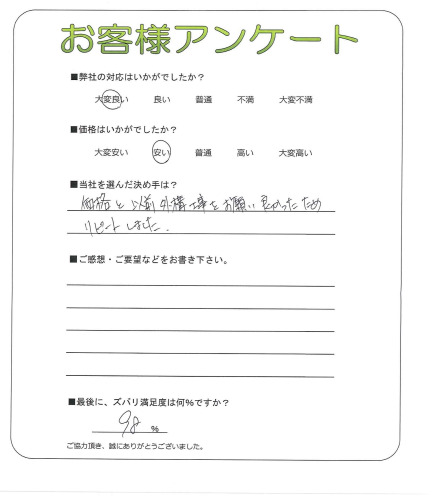 お客様アンケート
■弊社の対応はいかがでしたか?
大変良い 良い 普通 不満 大変不満
■価格はいかがでしたか?
大変安い 安い 普通 高い 大変高い
■当社を選んだ決め手は?
価格と以前外構工事をお願い良かったため
リピートしました.
■ご感想・ご要望などをお書き下さい。
■最後に、ズバリ満足度は何%ですか?
98 %
ご協力頂き、誠にありがとうございました。